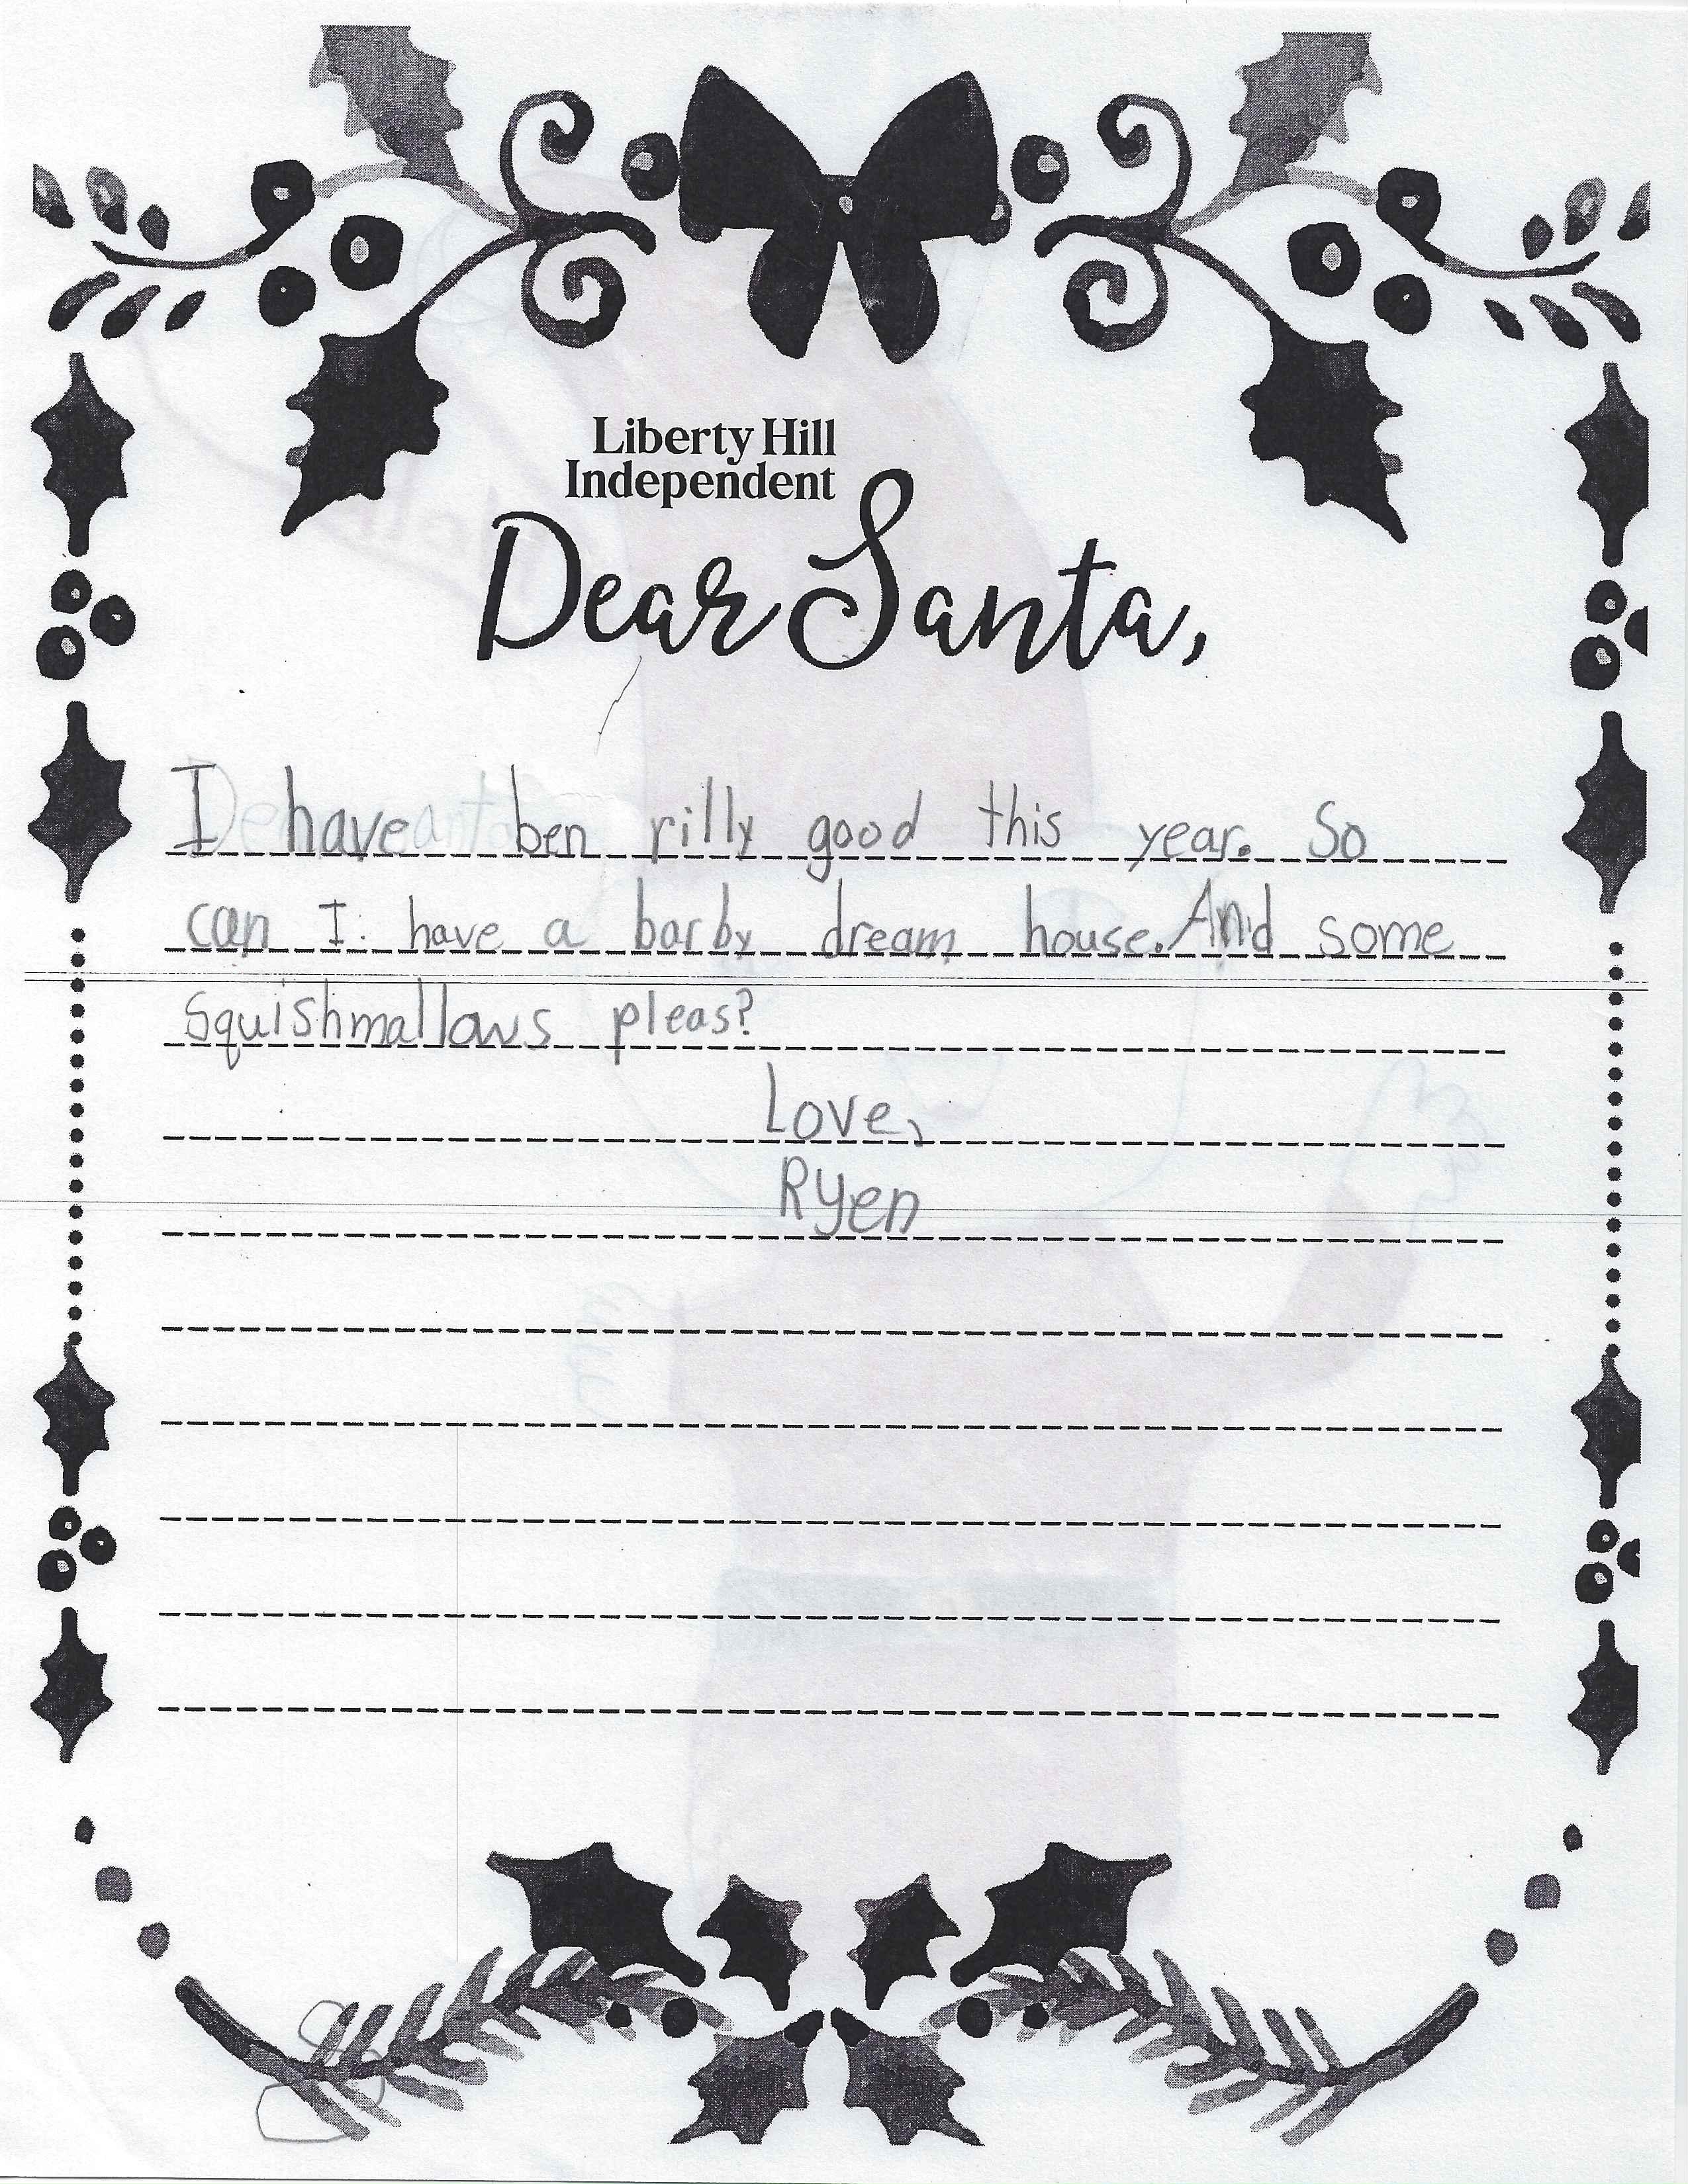 Liberty Hill
Independent
Dear Santa,
I have ben rilly good this year. So
can I have a barby dream house. And some
Squishmallows pleas?
Love,
Ryen